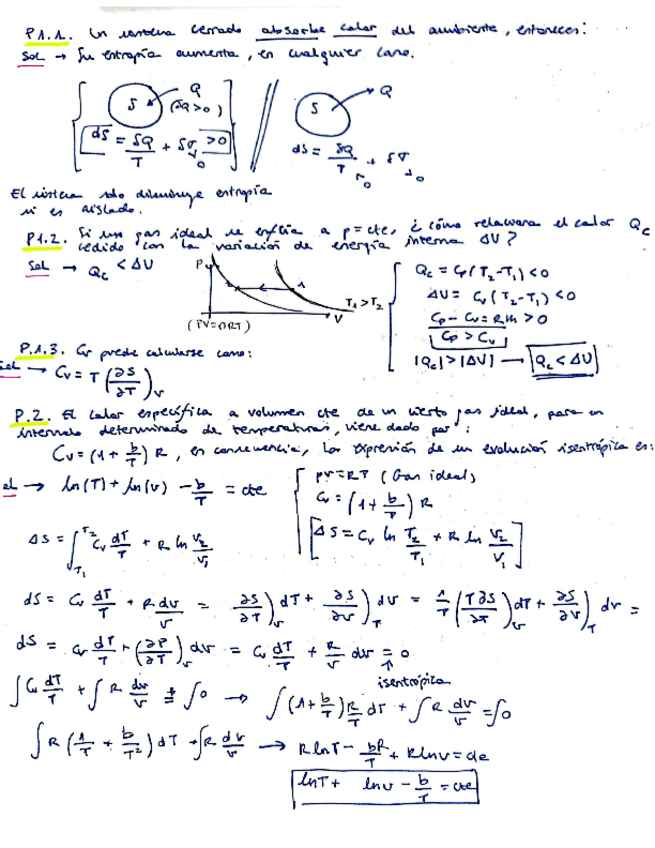 P1.1. Un sistema cerrado absorbe calor del ambiente, entonces:
Sol → Su entropía aumenta, en cualquier caso.
S Q (δQ>0)
dS = δQ/T + δσ >0
>0
S Q
dS = δQ/T + δσ
<0 >0
El sistema solo disminuye entropía
si es aislado.
P1.2. Si un gas ideal se enfría a p=cte, ¿cómo relacionara el calor Qc
cedido con la variación de energía interna ΔU?
Sol → Qc < ΔU
P 2 1 T1>T2 V
(PV=nRT)
Qc = Cp(T2-T1) <0
ΔU = Cv(T2-T1) <0
Cp - Cv = Rm > 0
Cp > Cv
|Qc|>|ΔU| → Qc < ΔU
P.1.3. Cv puede calcularse como:
Sol → Cv = T (∂S/∂T)v
P.2. El calor específica a volumen cte de un cierto gas ideal, para un
intervalo determinado de temperaturas, viene dado por:
Cv = (1 + b/T) R, en consecuencia, la expresión de una evolución isentrópica es:
Sol → ln(T) + ln(v) - b/T = cte
PV=RT (Gas ideal)
Cv = (1 + b/T) R
[ΔS = Cv ln T2/T1 + R ln V2/V1]
ΔS = ∫T1^T2 Cv dT/T + R ln V2/V1
dS = Cv dT/T + R dv/v = ∂S/∂T)v dT + ∂S/∂v)T dv = 1/T (T ∂S/∂T)v dT + ∂S/∂v)T dv =
dS = Cv dT/T + (∂P/∂T)v dv = Cv dT/T + R/v dv = 0
isentrópica
∫Cv dT/T + ∫R dv/v = ∫0 → ∫(1+b/T) R/T dT + ∫R dv/v = ∫0
∫R (1/T + b/T²) dT + ∫R dv/v → R lnT - bR/T + R lnv = cte
lnT + lnv - b/T = cte